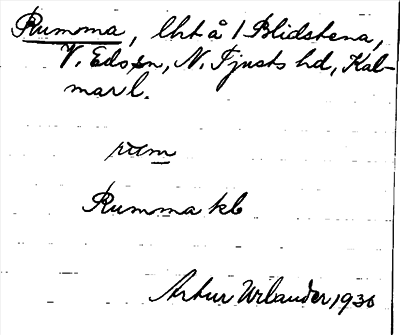 Rumma, lht å 1 Blidstena,
V. Eds sn, N. Tjusts hd, Kal-
mar l.
rum
Rumma kb
Artur Urlander 1930